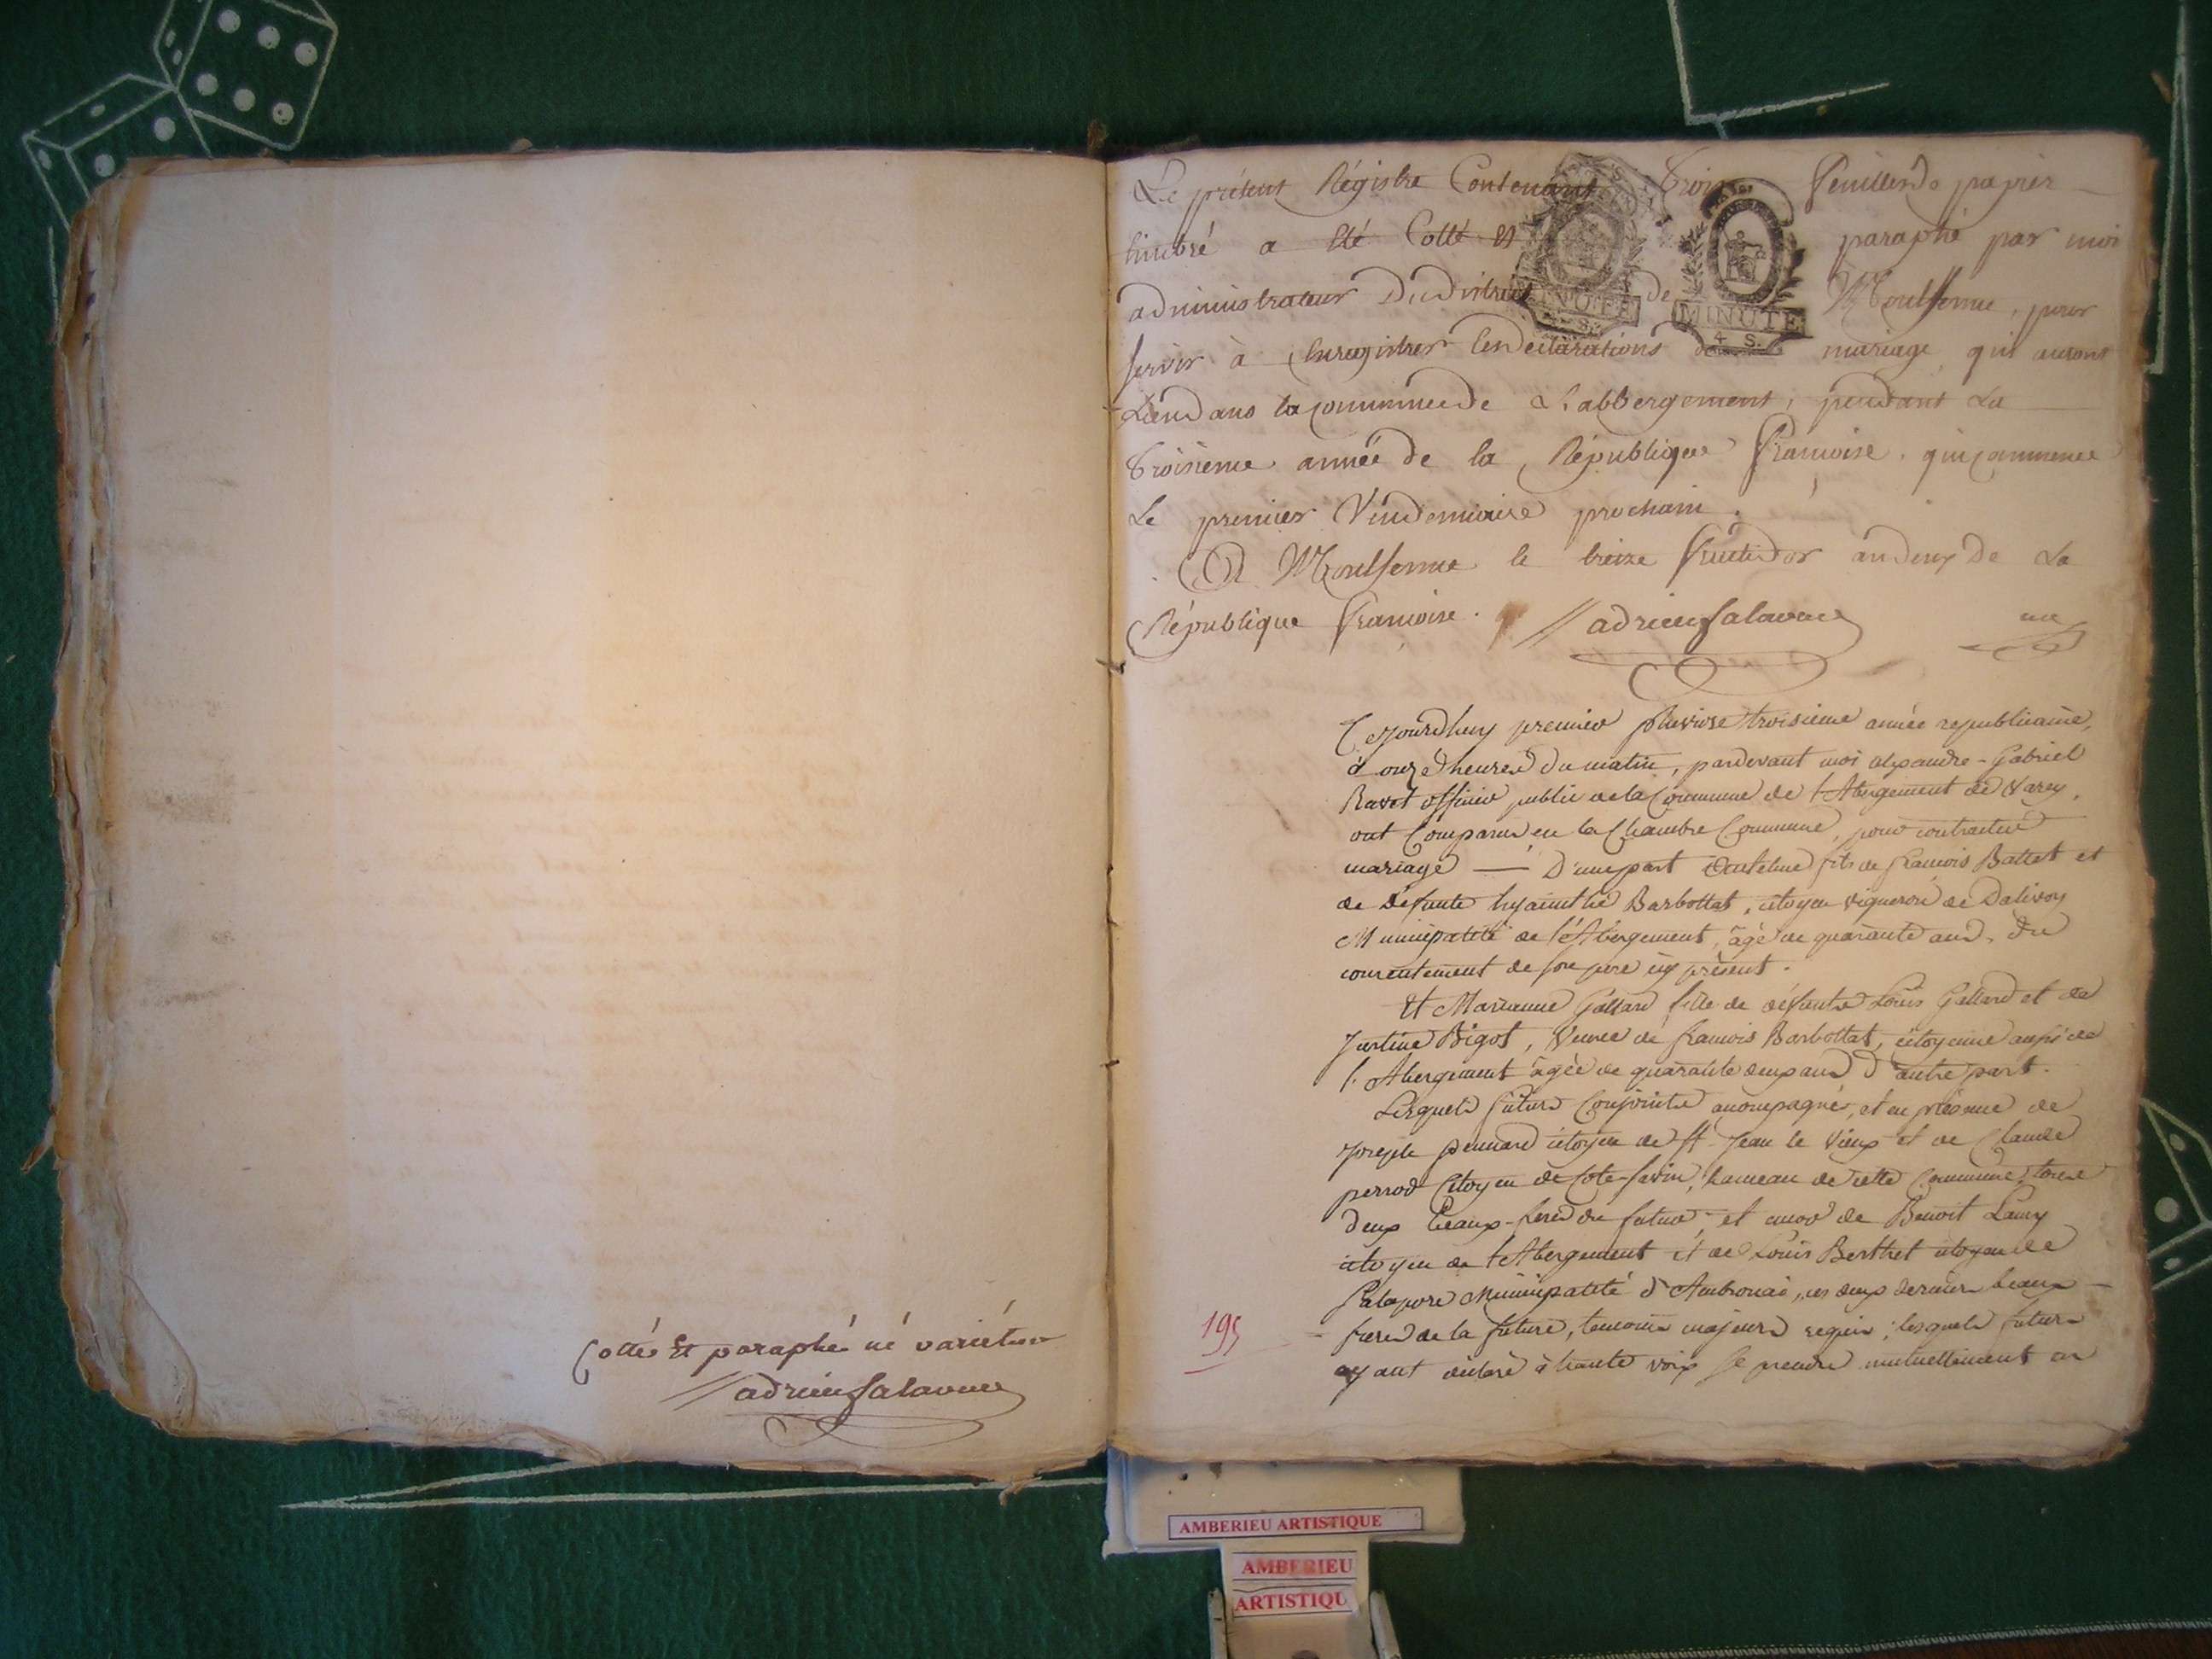 Cottés Et paraphé né variétur
adrien Salavuie
Le présent Régistre Contenant Trois feuilles de papier
timbré a été Cotté et paraphé par moi
administrateur du district de Montferme, pour
servir à Enregistrer les déclarations de mariage qui auront
Lieu dans la commune de L'abbergement, pendant La
troisieme année de la République françoise, qui commence
Le premier Vendemiaire prochain.
A Montferme le treize fructidor an deux de La
République françoise. adrien Salavuie une
MINUTE
4 S.
Cejourdhuy premier pluviose troisieme année republicaine,
à onze heures du matin, pardevant moi alexandre-Gabriel
Ravet officier public de la Commune de l'Abergement de Varey,
ont Comparus en la Chambre Commune, pour contracter
mariage — D'une part Anthelme fils de francois Battet et
de Défunte hyacinthe Barbottat, citoyen vigneron de Dalivoy
Municipalité de l'Abergement, âgé de quarante ans, du
consentement de son pere icy présent.
Et Marianne Gallard fille de défunts Louis Gallard et de
Justine Bigot, Veuve de francois Barbottat, citoyenne aussi de
l'Abergement âgée de quarante deux ans d'autre part.
Lesquels futurs Conjoints acompagnés, et en présence de
joseph pennard citoyen de St Jean le Vieux et de Claude
perrod Citoyen de Cote-savin, hameau de cette Commune, tous
deux beaux-freres du futur; et encor de Benoit Lamy
citoyen de l'Abergement et de Louis Berthet citoyen de
Municipalité d'Ambronai, ces deux derniers beaux
195
- freres de la future, temoins majeurs requis; lesquels futurs
ayant déclaré à haute voix se prendre mutuellement en
AMBERIEU ARTISTIQUE
AMBERIEU
ARTISTIQU